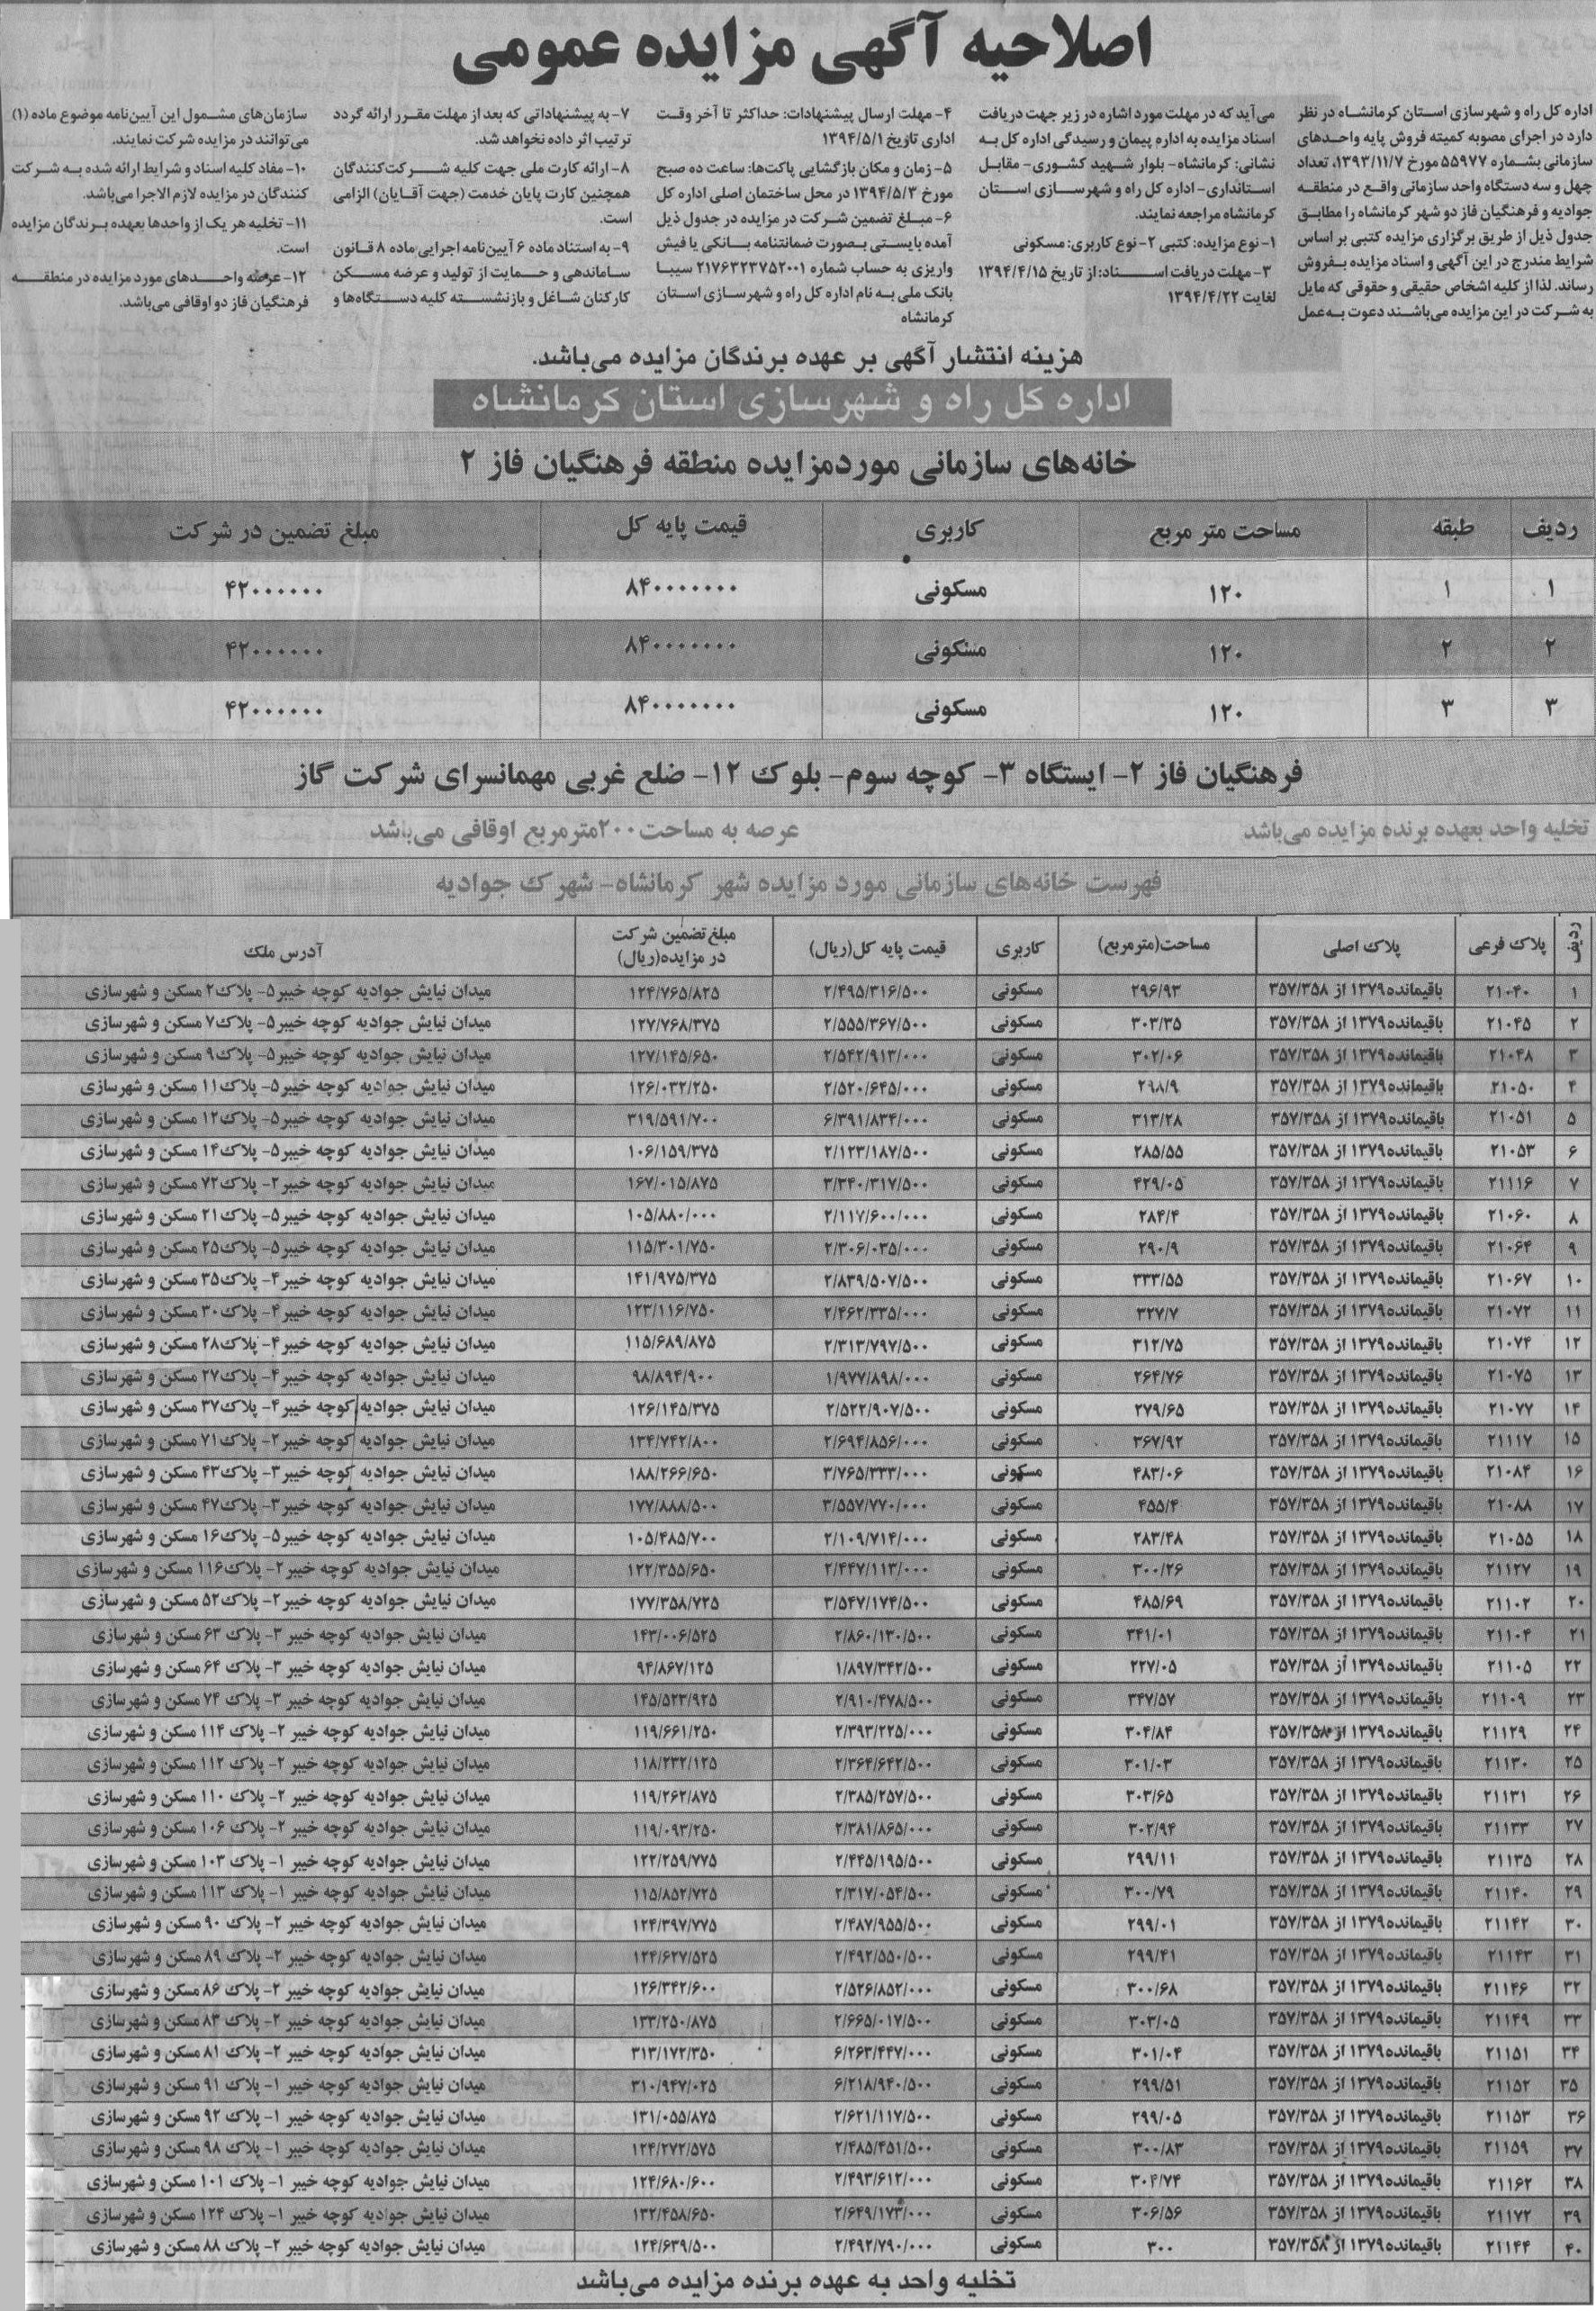 اصلاحیه آگهی مزایده عمومی
اداره کل راه و شهرسازی استان کرمانشاه در نظر
دارد در اجرای مصوبه کمیته فروش پایه واحدهای
سازمانی بشماره ۵۵۹۷۷ مورخ ۱۳۹۳/۱۱/۷، تعداد
چهل و سه دستگاه واحد سازمانی واقع در منطقه
جوادیه و فرهنگیان فاز دو شهر کرمانشاه را مطابق
جدول ذیل از طریق برگزاری مزایده کتبی بر اساس
شرایط مندرج در این آگهی و اسناد مزایده بفروش
رساند. لذا از کلیه اشخاص حقیقی و حقوقی که مایل
به شرکت در این مزایده می‌باشند دعوت به‌عمل
می‌آید که در مهلت مورد اشاره در زیر جهت دریافت
اسناد مزایده به اداره پیمان و رسیدگی اداره کل به
نشانی: کرمانشاه- بلوار شهید کشوری- مقابل
استانداری- اداره کل راه و شهرسازی استان
کرمانشاه مراجعه نمایند.
۱- نوع مزایده: کتبی ۲- نوع کاربری: مسکونی
۳- مهلت دریافت اسناد: از تاریخ ۱۳۹۴/۴/۱۵
لغایت ۱۳۹۴/۴/۲۲
۴- مهلت ارسال پیشنهادات: حداکثر تا آخر وقت
اداری تاریخ ۱۳۹۴/۵/۱
۵- زمان و مکان بازگشایی پاکت‌ها: ساعت ده صبح
مورخ ۱۳۹۴/۵/۳ در محل ساختمان اصلی اداره کل
۶- مبلغ تضمین شرکت در مزایده در جدول ذیل
آمده بایستی بصورت ضمانتنامه بانکی یا فیش
واریزی به حساب شماره ۲۱۷۶۳۲۳۷۵۲۰۰۱ سیبا
بانک ملی به نام اداره کل راه و شهرسازی استان
کرمانشاه
۷- به پیشنهاداتی که بعد از مهلت مقرر ارائه گردد
ترتیب اثر داده نخواهد شد.
۸- ارائه کارت ملی جهت کلیه شرکت‌کنندگان
همچنین کارت پایان خدمت (جهت آقایان) الزامی
است.
۹- به استناد ماده ۶ آیین‌نامه اجرایی ماده ۸ قانون
ساماندهی و حمایت از تولید و عرضه مسکن
کارکنان شاغل و بازنشسته کلیه دستگاه‌ها و
سازمان‌های مشمول این آیین‌نامه موضوع ماده (۱)
می‌توانند در مزایده شرکت نمایند.
۱۰- مفاد کلیه اسناد و شرایط ارائه شده به شرکت
کنندگان در مزایده لازم الاجرا می‌باشد.
۱۱- تخلیه هر یک از واحدها بعهده برندگان مزایده
است.
۱۲- عرصه واحدهای مورد مزایده در منطقه
فرهنگیان فاز دو اوقافی می‌باشد.
هزینه انتشار آگهی بر عهده برندگان مزایده می‌باشد.
اداره کل راه و شهرسازی استان کرمانشاه
خانه‌های سازمانی موردمزایده منطقه فرهنگیان فاز ۲
ردیف طبقه مساحت متر مربع کاربری قیمت پایه کل مبلغ تضمین در شرکت
۱ ۱ ۱۲۰ مسکونی ۸۴۰۰۰۰۰۰۰ ۴۲۰۰۰۰۰۰
۲ ۲ ۱۲۰ مسکونی ۸۴۰۰۰۰۰۰۰ ۴۲۰۰۰۰۰۰
۳ ۳ ۱۲۰ مسکونی ۸۴۰۰۰۰۰۰۰ ۴۲۰۰۰۰۰۰
فرهنگیان فاز ۲- ایستگاه ۳- کوچه سوم- بلوک ۱۲- ضلع غربی مهمانسرای شرکت گاز
تخلیه واحد بعهده برنده مزایده می‌باشد عرصه به مساحت ۲۰۰مترمربع اوقافی می‌باشد
فهرست خانه‌های سازمانی مورد مزایده شهر کرمانشاه- شهرک جوادیه
ردیف پلاک فرعی پلاک اصلی مساحت(مترمربع) کاربری قیمت پایه کل(ریال) مبلغ تضمین شرکت در مزایده(ریال) آدرس ملک
۱ ۲۱۰۴۰ باقیمانده۱۳۷۹ از ۳۵۷/۳۵۸ ۲۹۶/۹۳ مسکونی ۲/۴۹۵/۳۱۶/۵۰۰ ۱۲۴/۷۶۵/۸۲۵ میدان نیایش جوادیه کوچه خیبر۵- پلاک۲ مسکن و شهرسازی
۲ ۲۱۰۴۵ باقیمانده۱۳۷۹ از ۳۵۷/۳۵۸ ۳۰۳/۳۵ مسکونی ۲/۵۵۵/۳۶۷/۵۰۰ ۱۲۷/۷۶۸/۳۷۵ میدان نیایش جوادیه کوچه خیبر۵- پلاک۷ مسکن و شهرسازی
۳ ۲۱۰۴۸ باقیمانده۱۳۷۹ از ۳۵۷/۳۵۸ ۳۰۲/۰۶ مسکونی ۲/۵۴۲/۹۱۳/۰۰۰ ۱۲۷/۱۴۵/۶۵۰ میدان نیایش جوادیه کوچه خیبر۵- پلاک۹ مسکن و شهرسازی
۴ ۲۱۰۵۰ باقیمانده۱۳۷۹ از ۳۵۷/۳۵۸ ۲۹۸/۹ مسکونی ۲/۵۲۰/۶۴۵/۰۰۰ ۱۲۶/۰۳۲/۲۵۰ میدان نیایش جوادیه کوچه خیبر۵- پلاک۱۱ مسکن و شهرسازی
۵ ۲۱۰۵۱ باقیمانده۱۳۷۹ از ۳۵۷/۳۵۸ ۳۱۳/۲۸ مسکونی ۶/۳۹۱/۸۳۴/۰۰۰ ۳۱۹/۵۹۱/۷۰۰ میدان نیایش جوادیه کوچه خیبر۵- پلاک۱۲ مسکن و شهرسازی
۶ ۲۱۰۵۳ باقیمانده۱۳۷۹ از ۳۵۷/۳۵۸ ۲۸۵/۵۵ مسکونی ۲/۱۲۳/۱۸۷/۵۰۰ ۱۰۶/۱۵۹/۳۷۵ میدان نیایش جوادیه کوچه خیبر۵- پلاک۱۴ مسکن و شهرسازی
۷ ۲۱۱۱۶ باقیمانده۱۳۷۹ از ۳۵۷/۳۵۸ ۴۲۹/۰۵ مسکونی ۳/۳۴۰/۳۱۷/۵۰۰ ۱۶۷/۰۱۵/۸۷۵ میدان نیایش جوادیه کوچه خیبر۲- پلاک۷۲ مسکن و شهرسازی
۸ ۲۱۰۶۰ باقیمانده۱۳۷۹ از ۳۵۷/۳۵۸ ۲۸۴/۴ مسکونی ۲/۱۱۷/۶۰۰/۰۰۰ ۱۰۵/۸۸۰/۰۰۰ میدان نیایش جوادیه کوچه خیبر۵- پلاک۲۱ مسکن و شهرسازی
۹ ۲۱۰۶۴ باقیمانده۱۳۷۹ از ۳۵۷/۳۵۸ ۲۹۰/۹ مسکونی ۲/۳۰۶/۰۳۵/۰۰۰ ۱۱۵/۳۰۱/۷۵۰ میدان نیایش جوادیه کوچه خیبر۵- پلاک۲۵ مسکن و شهرسازی
۱۰ ۲۱۰۶۷ باقیمانده۱۳۷۹ از ۳۵۷/۳۵۸ ۳۳۳/۵۵ مسکونی ۲/۸۳۹/۵۰۷/۵۰۰ ۱۴۱/۹۷۵/۳۷۵ میدان نیایش جوادیه کوچه خیبر۴- پلاک۳۵ مسکن و شهرسازی
۱۱ ۲۱۰۷۲ باقیمانده۱۳۷۹ از ۳۵۷/۳۵۸ ۳۲۷/۷ مسکونی ۲/۴۶۲/۳۳۵/۰۰۰ ۱۲۳/۱۱۶/۷۵۰ میدان نیایش جوادیه کوچه خیبر۴- پلاک۳۰ مسکن و شهرسازی
۱۲ ۲۱۰۷۴ باقیمانده۱۳۷۹ از ۳۵۷/۳۵۸ ۳۱۲/۷۵ مسکونی ۲/۳۱۳/۷۹۷/۵۰۰ ۱۱۵/۶۸۹/۸۷۵ میدان نیایش جوادیه کوچه خیبر۴- پلاک۲۸ مسکن و شهرسازی
۱۳ ۲۱۰۷۵ باقیمانده۱۳۷۹ از ۳۵۷/۳۵۸ ۲۶۴/۷۶ مسکونی ۱/۹۷۷/۸۹۸/۰۰۰ ۹۸/۸۹۴/۹۰۰ میدان نیایش جوادیه کوچه خیبر۴- پلاک۲۷ مسکن و شهرسازی
۱۴ ۲۱۰۷۷ باقیمانده۱۳۷۹ از ۳۵۷/۳۵۸ ۲۷۹/۶۵ مسکونی ۲/۵۲۲/۹۰۷/۵۰۰ ۱۲۶/۱۴۵/۳۷۵ میدان نیایش جوادیه کوچه خیبر۴- پلاک۳۷ مسکن و شهرسازی
۱۵ ۲۱۱۱۷ باقیمانده۱۳۷۹ از ۳۵۷/۳۵۸ ۳۶۷/۹۲ مسکونی ۲/۶۹۴/۸۵۶/۰۰۰ ۱۳۴/۷۴۲/۸۰۰ میدان نیایش جوادیه کوچه خیبر۲- پلاک۷۱ مسکن و شهرسازی
۱۶ ۲۱۰۸۴ باقیمانده۱۳۷۹ از ۳۵۷/۳۵۸ ۴۸۳/۰۶ مسکونی ۳/۷۶۵/۳۳۳/۰۰۰ ۱۸۸/۲۶۶/۶۵۰ میدان نیایش جوادیه کوچه خیبر۳- پلاک۴۳ مسکن و شهرسازی
۱۷ ۲۱۰۸۸ باقیمانده۱۳۷۹ از ۳۵۷/۳۵۸ ۴۵۵/۴ مسکونی ۳/۵۵۷/۷۷۰/۰۰۰ ۱۷۷/۸۸۸/۵۰۰ میدان نیایش جوادیه کوچه خیبر۳- پلاک۴۷ مسکن و شهرسازی
۱۸ ۲۱۰۵۵ باقیمانده۱۳۷۹ از ۳۵۷/۳۵۸ ۲۸۳/۴۸ مسکونی ۲/۱۰۹/۷۱۴/۰۰۰ ۱۰۵/۴۸۵/۷۰۰ میدان نیایش جوادیه کوچه خیبر۵- پلاک۱۶ مسکن و شهرسازی
۱۹ ۲۱۱۲۷ باقیمانده۱۳۷۹ از ۳۵۷/۳۵۸ ۳۰۰/۲۶ مسکونی ۲/۴۴۷/۱۱۳/۰۰۰ ۱۲۲/۳۵۵/۶۵۰ میدان نیایش جوادیه کوچه خیبر۲- پلاک۱۱۶ مسکن و شهرسازی
۲۰ ۲۱۱۰۲ باقیمانده۱۳۷۹ از ۳۵۷/۳۵۸ ۴۸۵/۶۹ مسکونی ۳/۵۴۷/۱۷۴/۵۰۰ ۱۷۷/۳۵۸/۷۲۵ میدان نیایش جوادیه کوچه خیبر۲- پلاک۵۲ مسکن و شهرسازی
۲۱ ۲۱۱۰۴ باقیمانده۱۳۷۹ از ۳۵۷/۳۵۸ ۳۴۱/۰۱ مسکونی ۲/۸۶۰/۱۳۰/۵۰۰ ۱۴۳/۰۰۶/۵۲۵ میدان نیایش جوادیه کوچه خیبر ۳- پلاک ۶۳ مسکن و شهرسازی
۲۲ ۲۱۱۰۵ باقیمانده۱۳۷۹ از ۳۵۷/۳۵۸ ۲۲۷/۰۵ مسکونی ۱/۸۹۷/۳۴۲/۵۰۰ ۹۴/۸۶۷/۱۲۵ میدان نیایش جوادیه کوچه خیبر ۳- پلاک ۶۴ مسکن و شهرسازی
۲۳ ۲۱۱۰۹ باقیمانده۱۳۷۹ از ۳۵۷/۳۵۸ ۳۴۷/۵۷ مسکونی ۲/۹۱۰/۴۷۸/۵۰۰ ۱۴۵/۵۲۳/۹۲۵ میدان نیایش جوادیه کوچه خیبر ۳- پلاک ۷۴ مسکن و شهرسازی
۲۴ ۲۱۱۲۹ باقیمانده۱۳۷۹ از ۳۵۷/۳۵۸ ۳۰۴/۸۴ مسکونی ۲/۳۹۳/۲۲۵/۰۰۰ ۱۱۹/۶۶۱/۲۵۰ میدان نیایش جوادیه کوچه خیبر ۲- پلاک ۱۱۴ مسکن و شهرسازی
۲۵ ۲۱۱۳۰ باقیمانده۱۳۷۹ از ۳۵۷/۳۵۸ ۳۰۱/۰۳ مسکونی ۲/۳۶۴/۶۴۲/۵۰۰ ۱۱۸/۲۳۲/۱۲۵ میدان نیایش جوادیه کوچه خیبر ۲- پلاک ۱۱۲ مسکن و شهرسازی
۲۶ ۲۱۱۳۱ باقیمانده۱۳۷۹ از ۳۵۷/۳۵۸ ۳۰۳/۶۵ مسکونی ۲/۳۸۵/۲۵۷/۵۰۰ ۱۱۹/۲۶۲/۸۷۵ میدان نیایش جوادیه کوچه خیبر ۲- پلاک ۱۱۰ مسکن و شهرسازی
۲۷ ۲۱۱۳۳ باقیمانده۱۳۷۹ از ۳۵۷/۳۵۸ ۳۰۲/۹۴ مسکونی ۲/۳۸۱/۸۶۵/۰۰۰ ۱۱۹/۰۹۳/۲۵۰ میدان نیایش جوادیه کوچه خیبر ۲- پلاک ۱۰۶ مسکن و شهرسازی
۲۸ ۲۱۱۳۵ باقیمانده۱۳۷۹ از ۳۵۷/۳۵۸ ۲۹۹/۱۱ مسکونی ۲/۴۴۵/۱۹۵/۵۰۰ ۱۲۲/۲۵۹/۷۷۵ میدان نیایش جوادیه کوچه خیبر ۱- پلاک ۱۰۳ مسکن و شهرسازی
۲۹ ۲۱۱۴۰ باقیمانده۱۳۷۹ از ۳۵۷/۳۵۸ ۳۰۰/۷۹ مسکونی ۲/۳۱۷/۰۵۴/۵۰۰ ۱۱۵/۸۵۲/۷۲۵ میدان نیایش جوادیه کوچه خیبر ۱- پلاک ۱۱۳ مسکن و شهرسازی
۳۰ ۲۱۱۴۲ باقیمانده۱۳۷۹ از ۳۵۷/۳۵۸ ۲۹۹/۰۱ مسکونی ۲/۴۸۷/۹۵۵/۵۰۰ ۱۲۴/۳۹۷/۷۷۵ میدان نیایش جوادیه کوچه خیبر ۲- پلاک ۹۰ مسکن و شهرسازی
۳۱ ۲۱۱۴۳ باقیمانده۱۳۷۹ از ۳۵۷/۳۵۸ ۲۹۹/۴۱ مسکونی ۲/۴۹۲/۵۵۰/۵۰۰ ۱۲۴/۶۲۷/۵۲۵ میدان نیایش جوادیه کوچه خیبر ۲- پلاک ۸۹ مسکن و شهرسازی
۳۲ ۲۱۱۴۶ باقیمانده۱۳۷۹ از ۳۵۷/۳۵۸ ۳۰۰/۶۸ مسکونی ۲/۵۲۶/۸۵۲/۰۰۰ ۱۲۶/۳۴۲/۶۰۰ میدان نیایش جوادیه کوچه خیبر ۲- پلاک ۸۶ مسکن و شهرسازی
۳۳ ۲۱۱۴۹ باقیمانده۱۳۷۹ از ۳۵۷/۳۵۸ ۳۰۳/۰۵ مسکونی ۲/۶۶۵/۰۱۷/۵۰۰ ۱۳۳/۲۵۰/۸۷۵ میدان نیایش جوادیه کوچه خیبر ۲- پلاک ۸۳ مسکن و شهرسازی
۳۴ ۲۱۱۵۱ باقیمانده۱۳۷۹ از ۳۵۷/۳۵۸ ۳۰۱/۰۴ مسکونی ۶/۲۶۳/۴۴۷/۰۰۰ ۳۱۳/۱۷۲/۳۵۰ میدان نیایش جوادیه کوچه خیبر ۲- پلاک ۸۱ مسکن و شهرسازی
۳۵ ۲۱۱۵۲ باقیمانده۱۳۷۹ از ۳۵۷/۳۵۸ ۲۹۹/۵۱ مسکونی ۶/۲۱۸/۹۴۰/۵۰۰ ۳۱۰/۹۴۷/۰۲۵ میدان نیایش جوادیه کوچه خیبر ۱- پلاک ۹۱ مسکن و شهرسازی
۳۶ ۲۱۱۵۳ باقیمانده۱۳۷۹ از ۳۵۷/۳۵۸ ۲۹۹/۰۵ مسکونی ۲/۶۲۱/۱۱۷/۵۰۰ ۱۳۱/۰۵۵/۸۷۵ میدان نیایش جوادیه کوچه خیبر ۱- پلاک ۹۲ مسکن و شهرسازی
۳۷ ۲۱۱۵۹ باقیمانده۱۳۷۹ از ۳۵۷/۳۵۸ ۳۰۰/۸۳ مسکونی ۲/۴۸۵/۴۵۱/۵۰۰ ۱۲۴/۲۷۲/۵۷۵ میدان نیایش جوادیه کوچه خیبر ۱- پلاک ۹۸ مسکن و شهرسازی
۳۸ ۲۱۱۶۲ باقیمانده۱۳۷۹ از ۳۵۷/۳۵۸ ۳۰۴/۷۴ مسکونی ۲/۴۹۳/۶۱۲/۰۰۰ ۱۲۴/۶۸۰/۶۰۰ میدان نیایش جوادیه کوچه خیبر ۱- پلاک ۱۰۱ مسکن و شهرسازی
۳۹ ۲۱۱۷۲ باقیمانده۱۳۷۹ از ۳۵۷/۳۵۸ ۳۰۶/۵۶ مسکونی ۲/۶۴۹/۱۷۳/۰۰۰ ۱۳۲/۴۵۸/۶۵۰ میدان نیایش جوادیه کوچه خیبر ۱- پلاک ۱۲۴ مسکن و شهرسازی
۴۰ ۲۱۱۴۴ باقیمانده۱۳۷۹ از ۳۵۷/۳۵۸ ۳۰۰ مسکونی ۲/۴۹۲/۷۹۰/۰۰۰ ۱۲۴/۶۳۹/۵۰۰ میدان نیایش جوادیه کوچه خیبر ۲- پلاک ۸۸ مسکن و شهرسازی
تخلیه واحد به عهده برنده مزایده می‌باشد